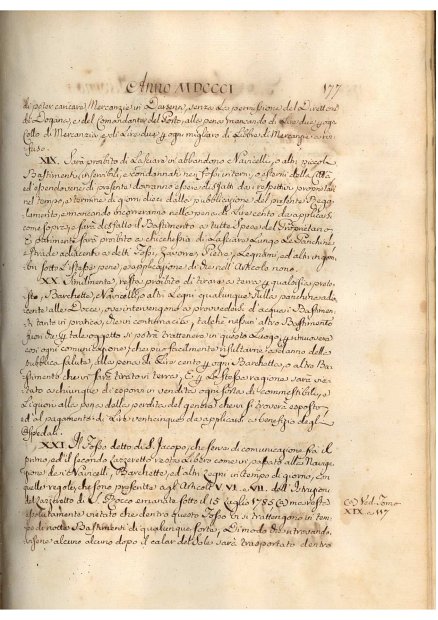 Anno MDCCCI 177
di poter caricare Mercanzie in Darsena, senza la permissione del Direttore
di Dogana, e del Comandante del Porto, alla pena mancando di Lire due per ogni
Collo di Mercanzia, e di Lire due per ogni migliaro di Libbre di Mercanzie a rin-
fuso.
XIX. Sarà proibito di lasciare in abbandono Navicelli, o altri piccoli
Bastimenti inservibili, e condannati nei Fossi interni, o esterni della Città
ed essendovene di presente dovranno essere disfatti dai respettivi proprietari
nel tempo, e termine di giorni dieci dalla pubblicazione del presente Reg-
lamento, e mancando incorreranno nella pena di Lire cento da applicarsi
come sopra, e sarà disfatto il Bastimento a tutte spese del Proprietario
E altrimenti sarà proibito a chicchesia di lasciare lungo le Panchine
e strade adiacenti a detti Fossi, Zavorre, Pietre, Legnami, ed altri ingom-
bri sotto l'istessa pena, e applicazione di che nell'Articolo nono.
XX. Similmente, resta proibito di tirare a terra per qualsisia prete-
sto, Barchette, Navicelli, o altri Legni qualunque sulla panchina ada-
cente alle Docce, ove intervengono a provvedersi d'acqua i Bastimen-
ti tanto in pratica, che in contumacia, talchè nessun altro Bastimento
fuori che per tale oggetto si potrà trattenere in questo Luogo, per rimuovere
così ogni comunicazione, che più facilmente risultarne a danno della
pubblica salute, alla pena di Lire cento per ogni Barchetta, o altro Ba-
stimento che vi sarà tirato in terra. E per la stessa ragione sarà vie-
tato a chiunque di esporvi in vendita ogni sorta di commestibili, e
Liquori alla pena della perdita del genere che vi si troverà esposto,
ed al pagamento di Lire venticinque da applicarsi a benefizio degli
Ospedali.
XXI. Il Fosso detto di S. Jacopo, che serve di comunicazione fra il
primo, ed il secondo Lazzeretto resterà libero come in passato alla Naviga-
zione dei Navicelli, Barchette, ed altri Legni in tempo di giorno, con
quelle regole, che sono prescritte agli Articoli V. VI. e VII. dell'Istruzioni
del Lazzeretto di S. Rocco emanate sotto il 15 Luglio 1785 (a) ma resta
assolutamente vietato che dentro questo Fosso vi si trattengono in tem-
po di notte Bastimenti di qualunque sorte, di modo che ritrovan-
dosene alcuno dopo il calar del Sole sarà trasportato dentro
(a) Ved. Tomo
XIX. a 117